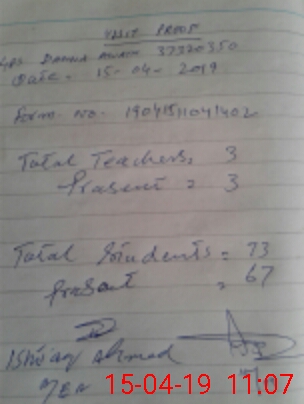 VISIT PROOF
GPS Dhok Awan 37320350
Date. 15-04-2019
Form. No. 19041511041402
Total Teachers, 3
Present = 3
Total Students = 73
Present = 67
Ishtiaq Ahmad
15-04-19 11:07